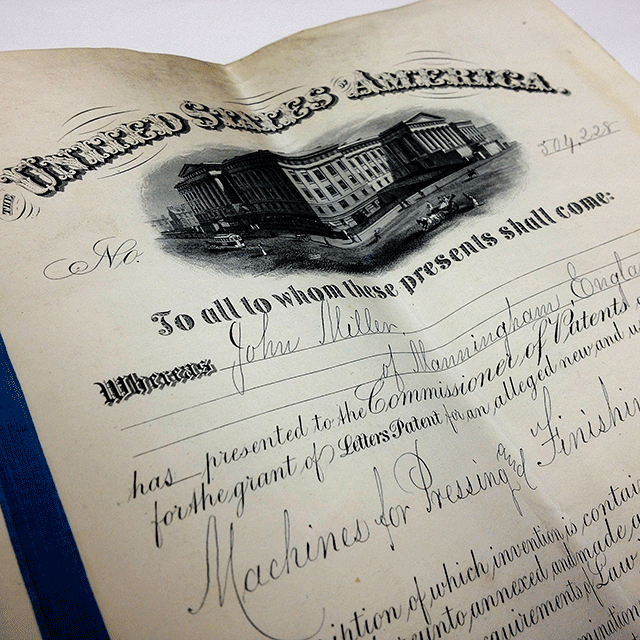 THE UNITED STATES OF AMERICA.
No.
504,228
To all to whom these presents shall come:
Whereas John Miller
of Manningham, England
has presented to the Commissioner of Patents
for the grant of Letters Patent for an alleged new and
Machines for Pressing and
ption of which invention is
annexed and made
quirements of Law